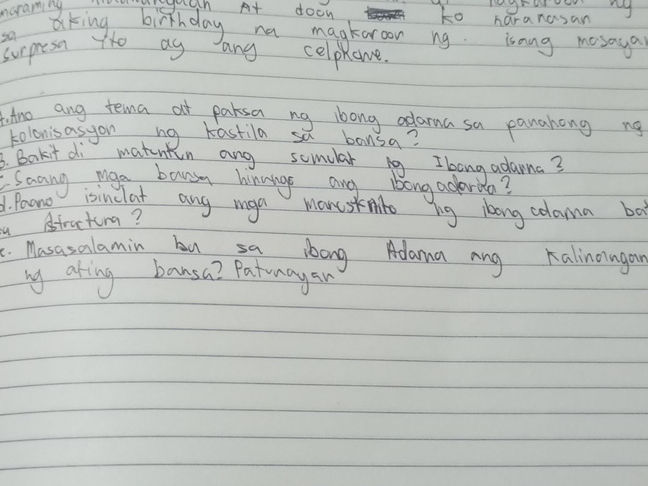 maraming At doon ko naranasan
sa aking birthday na magkaroon ng. isang masayan
surpresa Ito ay ang celphone.
A. Ano ang tema at paksa ng ibong adarna sa panahong ng
kolonisasyon ng kastila sa bansa?
B. Bakit di matuntun ang sumulat ng Ibang adarna?
C. Saang mga bansa hinango ang ibong adarda?
d. Paano isinelat ang mga ng ibong adarna
Astractura?
e. Masasalamin ba sa ibong Adarna ang Kalinangan
ng ating bansa? Patunayan